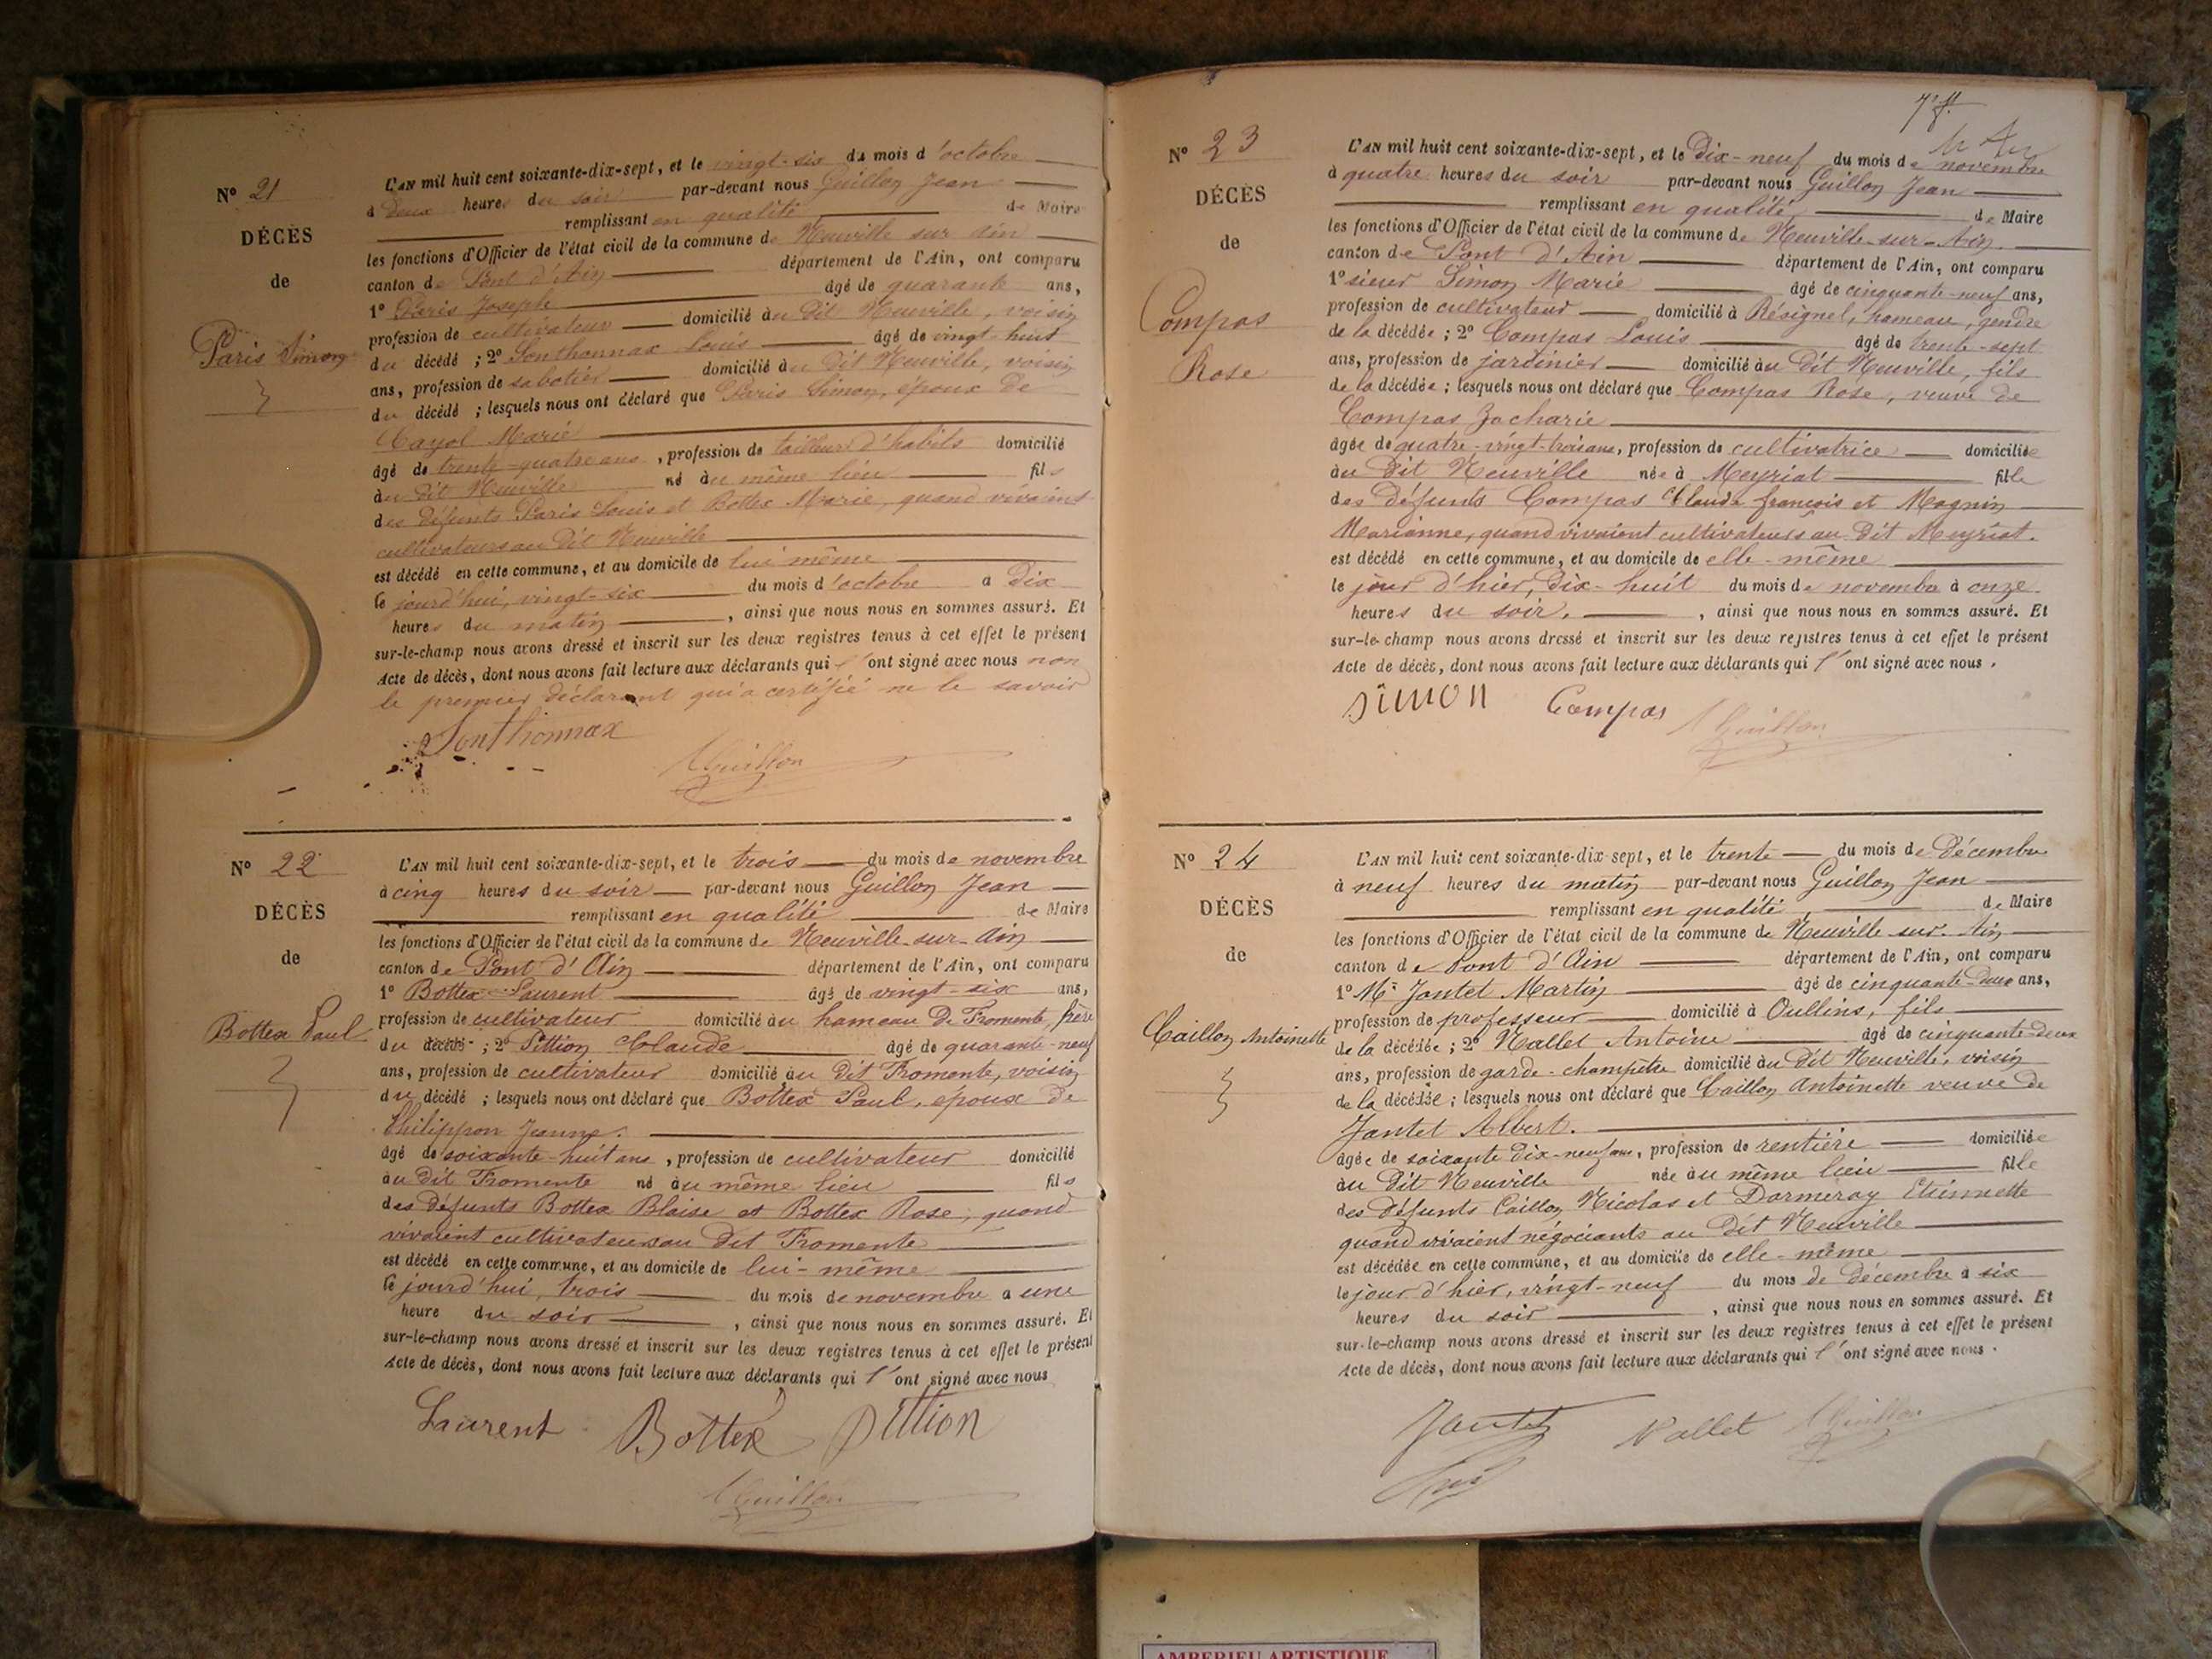 N° 21
DÉCÈS
de
Paris Simon
L'AN mil huit cent soixante-dix-sept, et le vingt-six du mois d'octobre
à deux heures du soir par-devant nous Guillon Jean
remplissant en qualité de Maire
les fonctions d'Officier de l'état civil de la commune de Neuville sur Ain
canton de Pont d'Ain département de l'Ain, ont comparu
1° Paris Joseph âgé de quarante ans,
profession de cultivateur domicilié au dit Neuville, voisin
du décédé ; 2° Sonthonnax Louis âgé de vingt-huit
ans, profession de sabotier domicilié au dit Neuville, voisin
du décédé ; lesquels nous ont déclaré que Paris Simon, époux de
Marie
âgé de trente-quatre ans, profession de tailleur d'habits domicilié
au dit Neuville né au même lieu fils
des défunts Paris Louis et Bottex Marie, quand vivaient
cultivateurs au dit Neuville
est décédé en cette commune, et au domicile de lui même
le jourd'hui, vingt-six du mois d'octobre à dix
heures du matin, ainsi que nous nous en sommes assuré. Et
sur-le-champ nous avons dressé et inscrit sur les deux registres tenus à cet effet le présent
Acte de décès, dont nous avons fait lecture aux déclarants qui l'ont signé avec nous non
le premier déclarant qui a certifié ne le savoir
Sonthonnax
Guillon
N° 22
DÉCÈS
de
Bottex Paul
L'AN mil huit cent soixante-dix-sept, et le trois du mois de novembre
à cinq heures du soir par-devant nous Guillon Jean
remplissant en qualité de Maire
les fonctions d'Officier de l'état civil de la commune de Neuville-sur-Ain
canton de Pont d'Ain département de l'Ain, ont comparu
1° Bottex Laurent âgé de vingt-six ans,
profession de cultivateur domicilié au hameau de Fromente, frère
du décédé ; 2° Pittion Claude âgé de quarante-neuf
ans, profession de cultivateur domicilié au dit Fromente, voisin
du décédé ; lesquels nous ont déclaré que Bottex Paul, époux de
Philippon Jeanne.
âgé de soixante-huit ans, profession de cultivateur domicilié
au dit Fromente né au même lieu fils
des défunts Bottex Blaise et Bottex Rose, quand
vivaient cultivateurs au dit Fromente
est décédé en cette commune, et au domicile de lui-même
le jourd'hui, trois du mois de novembre à une
heure du soir, ainsi que nous nous en sommes assuré. Et
sur-le-champ nous avons dressé et inscrit sur les deux registres tenus à cet effet le présent
Acte de décès, dont nous avons fait lecture aux déclarants qui l'ont signé avec nous
Laurent Bottex Pittion
Guillon
N° 23
DÉCÈS
de
Compas
Rose
L'AN mil huit cent soixante-dix-sept, et le dix-neuf du mois de novembre
à quatre heures du soir par-devant nous Guillon Jean
remplissant en qualité, de Maire
les fonctions d'Officier de l'état civil de la commune de Neuville-sur-Ain.
canton de Pont d'Ain département de l'Ain, ont comparu
1° sieur Simon Marie âgé de cinquante-neuf ans,
profession de cultivateur domicilié à Résignel, hameau, gendre
de la décédée ; 2° Compas Louis âgé de trente-sept
ans, profession de jardinier domicilié au dit Neuville, fils
de la décédée ; lesquels nous ont déclaré que Compas Rose, veuve de
Compas Zacharie
âgée de quatre-vingt-trois ans, profession de cultivatrice domiciliée
au dit Neuville née à Meyriat fille
des défunts Compas Claude françois et Magnin
Marianne, quand vivaient cultivateurs au dit Meyriat.
est décédé en cette commune, et au domicile de elle-même
le jour d'hier, dix-huit du mois de novembre à onze
heures du soir, ainsi que nous nous en sommes assuré. Et
sur-le-champ nous avons dressé et inscrit sur les deux registres tenus à cet effet le présent
Acte de décès, dont nous avons fait lecture aux déclarants qui l'ont signé avec nous.
SIMON Compas Guillon
N° 24
DÉCÈS
de
Caillon Antoinette
L'AN mil huit cent soixante-dix-sept, et le trente du mois de décembre
à neuf heures du matin par-devant nous Guillon Jean
remplissant en qualité, de Maire
les fonctions d'Officier de l'état civil de la commune de Neuville-sur-Ain
canton de Pont d'Ain département de l'Ain, ont comparu
1° Mr Jantet Martin âgé de cinquante-deux ans,
profession de professeur domicilié à Oullins, fils
de la décédée ; 2° Nallet Antoine âgé de cinquante-deux
ans, profession de garde-champêtre domicilié au dit Neuville, voisin
de la décédée ; lesquels nous ont déclaré que Caillon Antoinette veuve de
Jantet Albert.
âgée de soixante dix-neuf ans, profession de rentière domiciliée
au dit Neuville née au même lieu fille
des défunts Caillon Nicolas et Dormeray Etiennette
quand vivaient négociants au dit Neuville
est décédée en cette commune, et au domicile de elle-même
le jour d'hier, vingt-neuf du mois de décembre à six
heures du soir, ainsi que nous nous en sommes assuré. Et
sur-le-champ nous avons dressé et inscrit sur les deux registres tenus à cet effet le présent
Acte de décès, dont nous avons fait lecture aux déclarants qui l'ont signé avec nous.
Jantet Nallet Guillon
AMBERIEU ARTISTIQUE